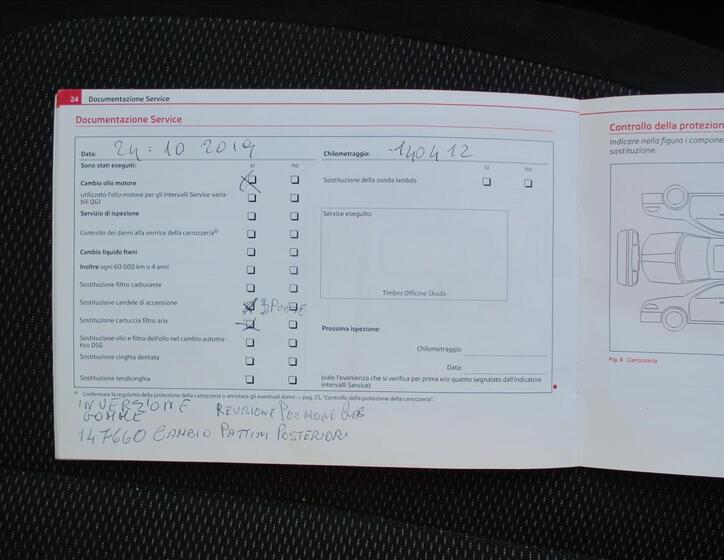 24 Documentazione Service
Documentazione Service
Data: 24 : 10 2019
Chilometraggio: 140412
Sono stati eseguiti:
sì no
Cambio olio motore
utilizzato l'olio motore per gli intervalli Service varia-
bili QG1
Servizio di ispezione
Controllo dei danni alla vernice della carrozzeria
Cambio liquido freni
Inoltre ogni 60 000 km o 4 anni
Sostituzione filtro carburante
Sostituzione candele di accensione
Sostituzione cartuccia filtro aria
Sostituzione olio e filtro dell'olio nel cambio automa-
tico DSG
Sostituzione cinghia dentata
Sostituzione tendicinghia
sì no
Sostituzione della sonda lambda
Service eseguito:
Timbro Officine Skoda
Prossima ispezione:
Chilometraggio:
Data:
(vale l'evenienza che si verifica per prima e/o quanto segnalato dall'indicatore
intervalli Service)
Confermare la regolarità della protezione della carrozzeria o annotare gli eventuali danni ⇒ pag. 25, "Controllo della protezione della carrozzeria".
INVERSIONE
GOMME
REVISIONE POLMONE GAS
147660 CAMBIO PATTINI POSTERIORI
Controllo della protezion
Indicare nella figura i compone
sostituzione.
Fig. 6 Carrozzeria